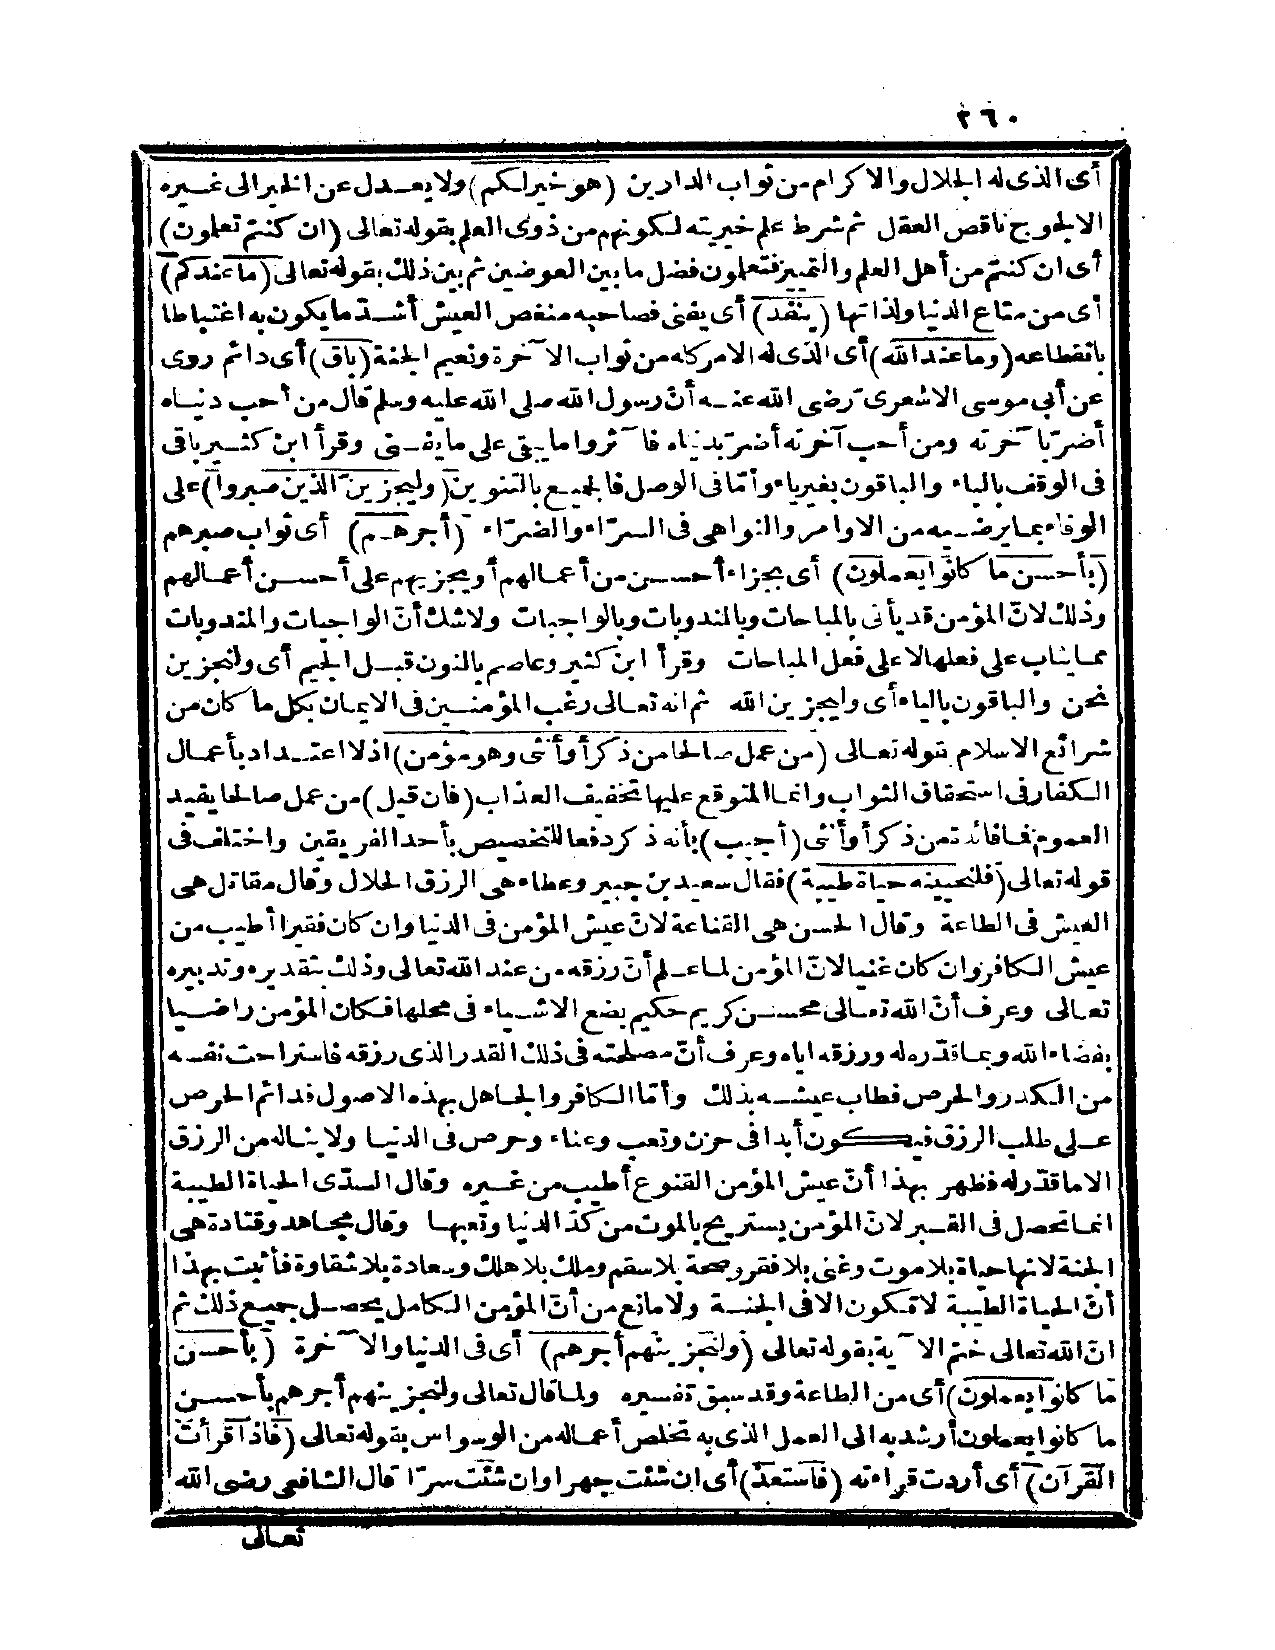 ٢٦٠
أى الذى له الجلال والاكرام من ثواب الدارين (هو خير لكم) ولا يعدل عن الخير الى غيره
الا لجوج ناقص العقل ثم شرط علم خيريته لكونهم من ذوى العلم بقوله تعالى (ان كنتم تعلمون)
أى ان كنتم من أهل العلم والتمييز فتعلمون فضل ما بين العوضين ثم بين ذلك بقوله تعالى (ما عندكم)
أى من متاع الدنيا ولذاتها (ينفد) أى يفنى فصاحبه منغص العيش أشدّ ما يكون به اغتباطا
بانقطاعه (وما عند الله) أى الذى له الامر كله من ثواب الآخرة ونعيم الجنة (باق) أى دائم روى
عن أبى موسى الاشعرى رضى الله عنه أنّ رسول الله صلى الله عليه وسلم قال من أحب دنياه
أضرّ بآخرته ومن أحب آخرته أضرّ بدنياه فآثروا ما يبقى على ما يفنى وقرأ ابن كثير باقى
فى الوقف بالياء والباقون بغير ياء وأمّا فى الوصل فالجميع بالتنوين (وليجزينّ الذين صبروا) على
الوفاء بما يرضيه من الاوامر والنواهى فى السرّاء والضرّاء (أجرهم) أى ثواب صبرهم
(بأحسن ما كانوا يعملون) أى بجزاء أحسن من أعمالهم أو يجزيهم على أحسن أعمالهم
وذلك لانّ المؤمن قد يأتى بالمباحات وبالمندوبات وبالواجبات ولاشك أنّ الواجبات والمندوبات
مما يثاب على فعلها لا على فعل المباحات وقرأ ابن كثير وعاصم بالنون قبل الجيم أى ولنجزين
نحن والباقون بالياء أى وليجزين الله ثم انه تعالى رغب المؤمنين فى الايمان بكل ما كان من
شرائع الاسلام بقوله تعالى (من عمل صالحا من ذكر أو أنثى وهو مؤمن) اذ لا اعتداد بأعمال
الكفار فى استحقاق الثواب وانما المتوقع عليها تخفيف العذاب (فان قيل) من عمل صالحا يفيد
العموم فما فائدة من ذكر أو أنثى (أجيب) بأنه ذكر دفعا للتخصيص بأحد الفريقين واختلف فى
قوله تعالى (فلنحيينه حياة طيبة) فقال سعيد بن جبير وعطاء هى الرزق الحلال وقال مقاتل هى
العيش فى الطاعة وقال الحسن هى القناعة لانّ عيش المؤمن فى الدنيا وان كان فقيرا أطيب من
عيش الكافر وان كان غنيا لانّ المؤمن لما علم أنّ رزقه من عند الله تعالى وذلك بتقديره وتدبيره
تعالى وعرف أنّ الله تعالى محسن كريم حكيم يضع الاشياء فى محلها فكان المؤمن راضيا
بقضاء الله وبما قدّره له ورزقه اياه وعرف أنّ مصلحته فى ذلك القدر الذى رزقه فاستراحت نفسه
من الكدر والحرص فطاب عيشه بذلك وأمّا الكافر والجاهل بهذه الاصول فدائم الحرص
على طلب الرزق فيكون أبدا فى حزن وتعب وعناء وحرص فى الدنيا ولا يناله من الرزق
الا ما قدّر له فظهر بهذا أنّ عيش المؤمن القنوع أطيب من غيره وقال السدّى الحياة الطيبة
انما تحصل فى القبر لانّ المؤمن يستريح بالموت من كدّ الدنيا وتعبها وقال مجاهد وقتادة هى
الجنة لانها حياة بلا موت وغنى بلا فقر وصحة بلا سقم وملك بلا هلك وسعادة بلا شقاوة فأثبت بهذا
أنّ الحياة الطيبة لا تكون الا فى الجنة ولا مانع من أنّ المؤمن الكامل يحصل جميع ذلك ثم
انّ الله تعالى ختم الآية بقوله تعالى (ولنجزينهم أجرهم) أى فى الدنيا والآخرة (بأحسن
ما كانوا يعملون) أى من الطاعة وقد سبق تفسيره ولما قال تعالى ولنجزينهم أجرهم بأحسن
ما كانوا يعملون أرشد به الى العمل الذى به تخلص أعماله من الوسواس بقوله تعالى (فاذا قرأت
القرآن) أى أردت قراءته (فاستعذ) أى ان شئت جهرا وان شئت سرّا قال الشافعى رضى الله
تعالى